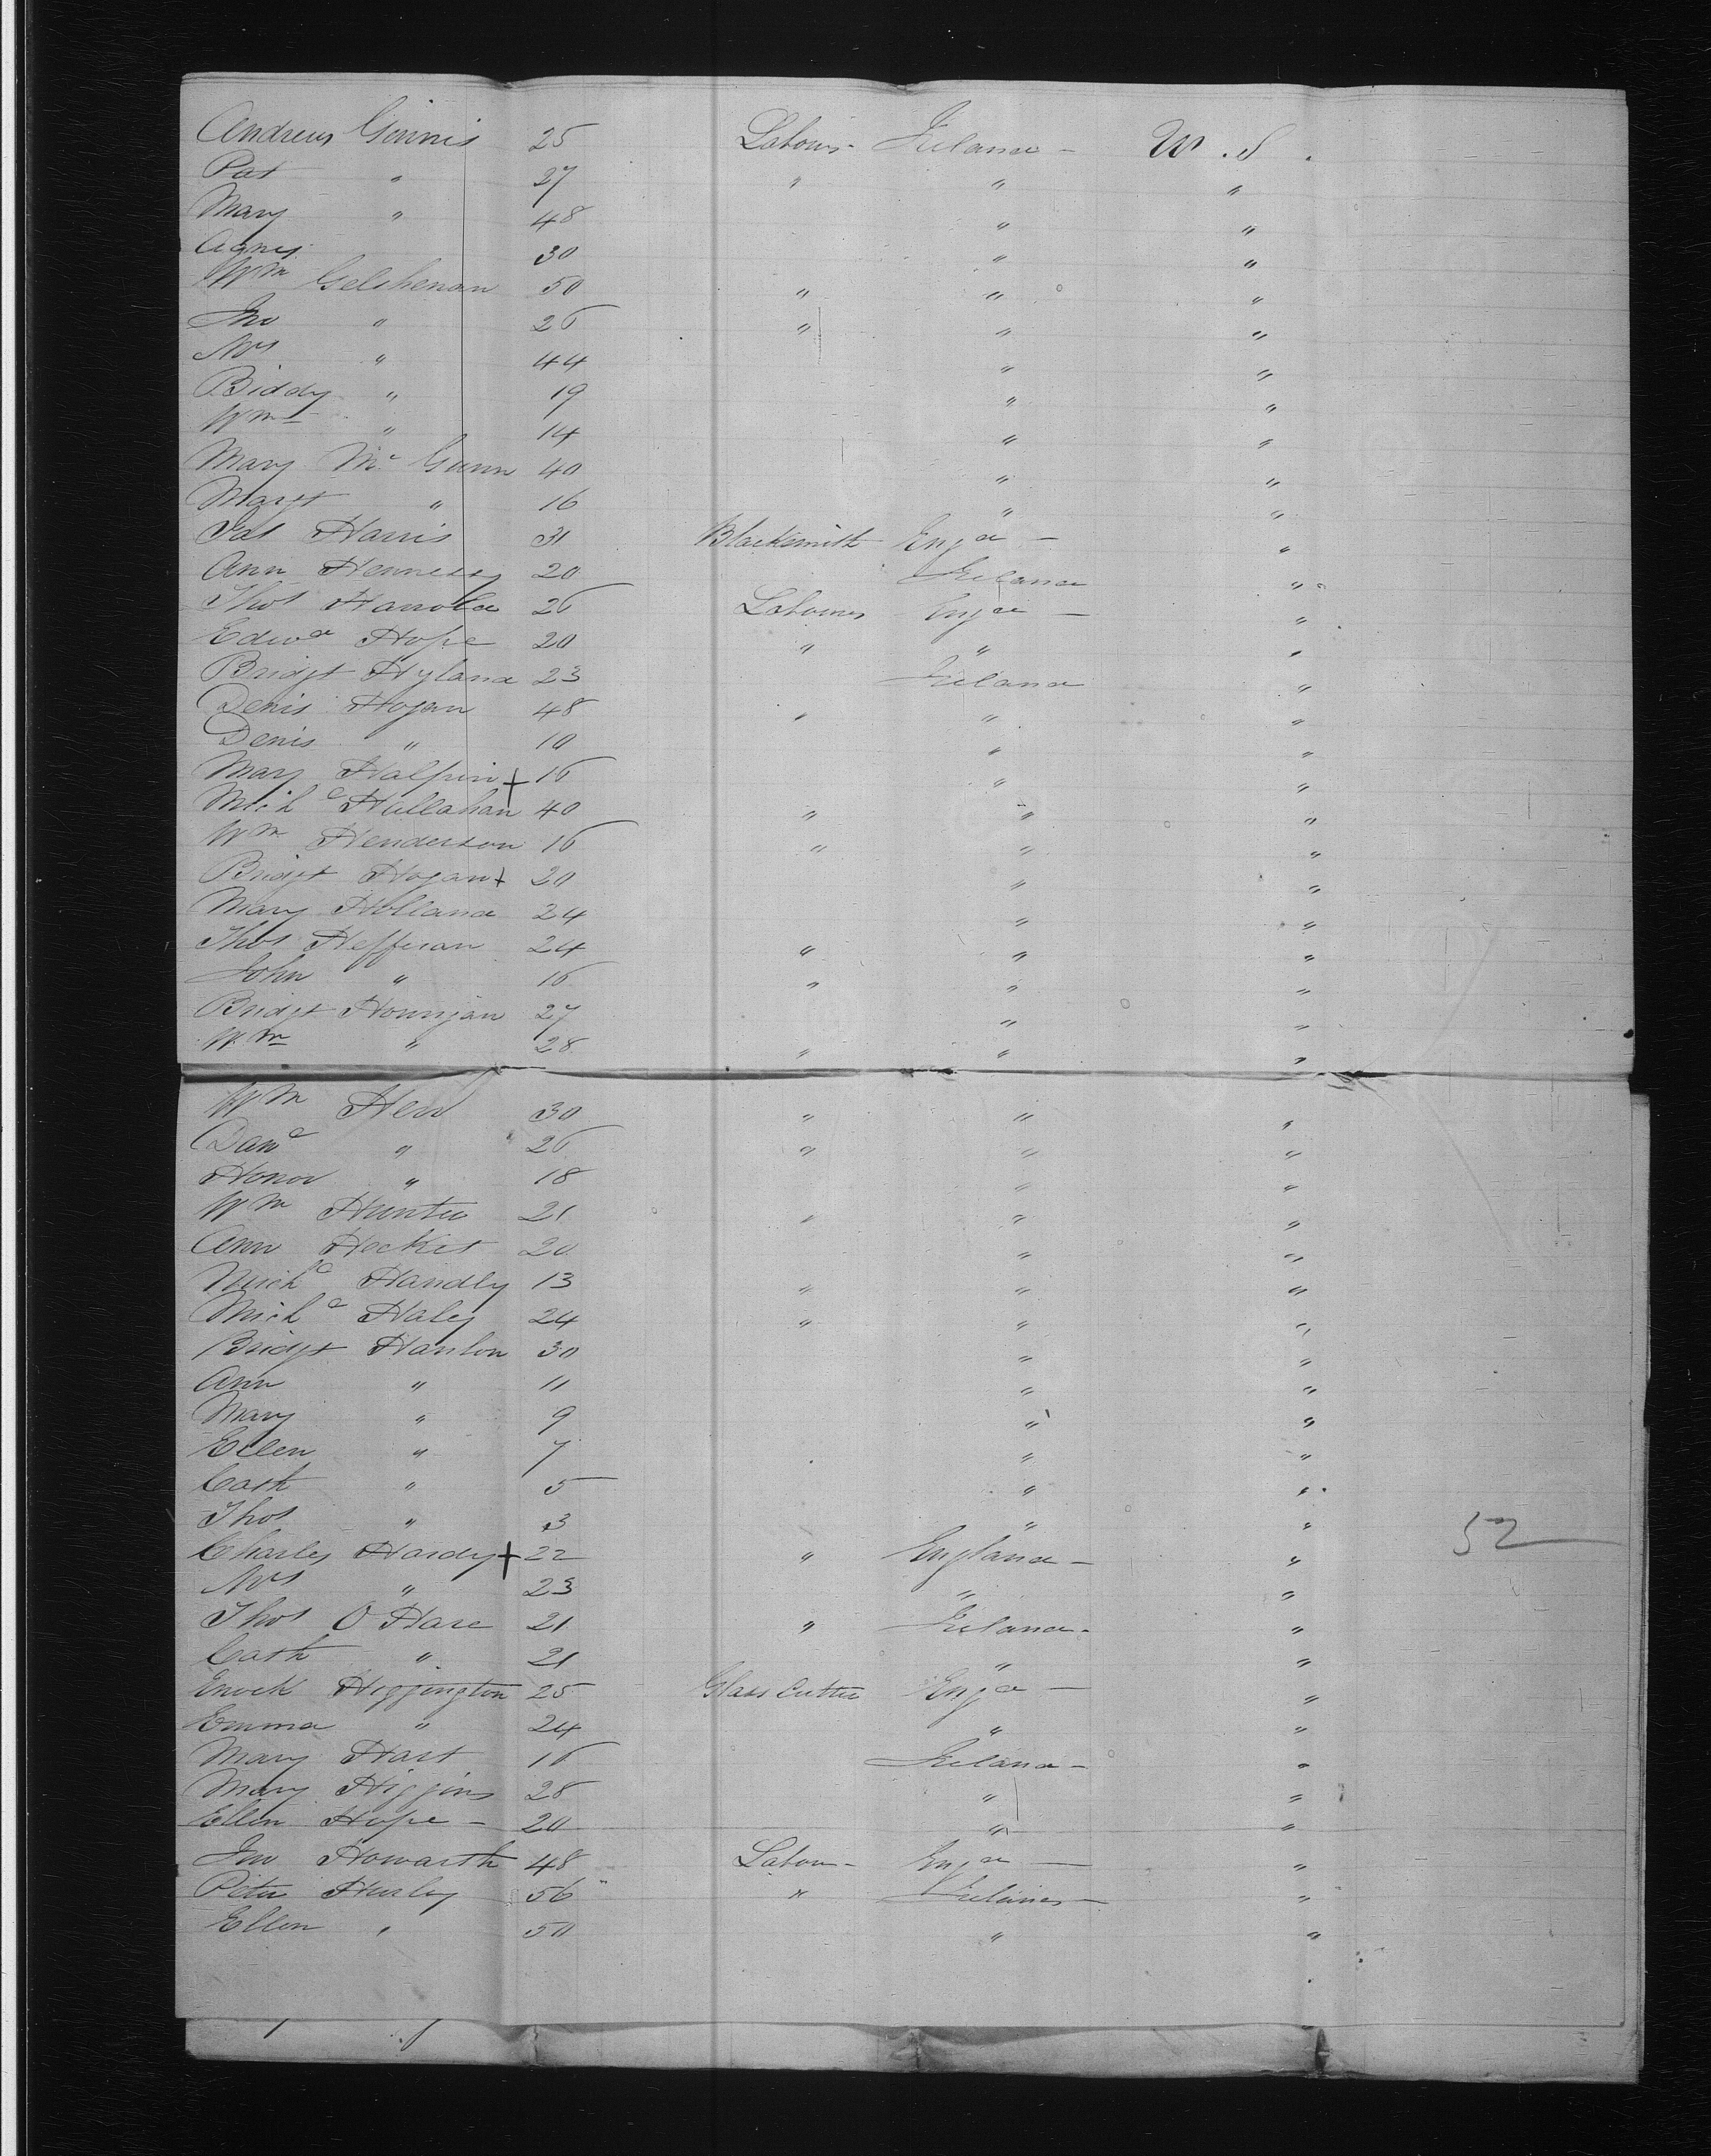 Andrew Ginnis 25 Labour - Ireland - U. S.
Pat " 27 " " "
Mary " 48 " "
Agnes 30 " "
Wm Gelshenan 50 " " "
Jno " 26 " " "
Mrs " 44 " "
Biddy " 19 " "
Wm " 14 " "
Mary Mc Gunn 40 " "
Margt " 16 " "
Pat Harris 31 Blacksmith Engd - "
Ann Hennessy 20 Ireland "
Thos Harrold 26 Labourer Engd - "
Edwd Hope 20 " " "
Bridgt Hyland 23 Ireland "
Denis Hogan 48 " " "
Denis " 10 " "
Mary Halpin + 16 " "
Michl Hallahan 40 " " "
Wm Henderson 16 " " "
Bridgt Hogan + 20 " "
Mary Holland 24 " "
Thos Heffernan 24 " " "
John " 16 " " "
Bridgt Hourigan 27 " "
Wm " 28 " " "
Wm Hew 30 " " "
Danl " 26 " " "
Honor " 18 " "
Wm Hunter 21 " " "
Ann Hecket 20 " "
Michl Handly 13 " " "
Michl Haley 24 " " "
Bridgt Hanlon 30 " "
Ann " 11 " "
Mary " 9 " "
Ellen " 7 " "
Cath " 5 " "
Thos " 3 " " 52
Charley Hardy + 22 " England - "
Mrs " 23 " "
Thos O Hare 21 " Ireland - "
Cath " 21 " "
Enoch Higgington 25 Glass Cutter Engd - "
Emma " 24 " "
Mary Hart 16 Ireland - "
Mary Higgins 28 " "
Ellen Hope - 20 " "
Jno Howarth 48 Labour - Engd - "
Peter Hurley 56 " Ireland - "
Ellen " 50 " "